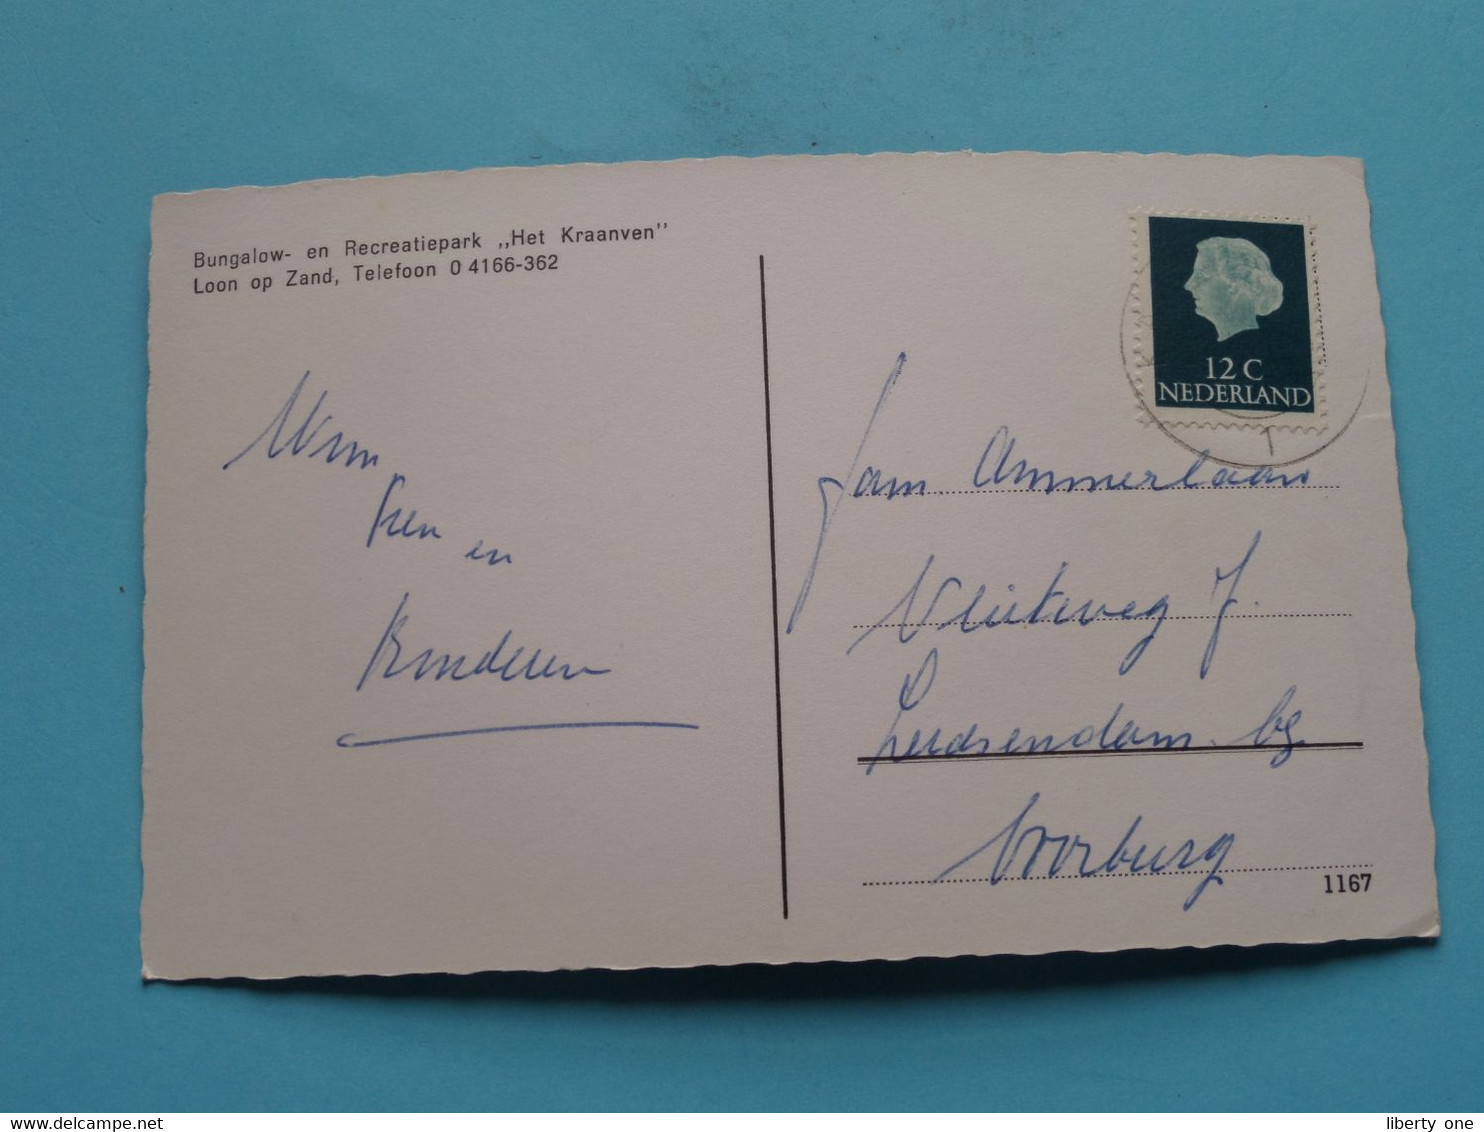 Bungalow- en Recreatiepark ,,Het Kraanven''
Loon op Zand, Telefoon 0 4166-362
12 C
NEDERLAND
Wim,
Rien en
Kinderen
Fam. Ammerlaan
Vlietweg 7.
Leidsendam. bg.
Voorburg
1167
liberty one
delcampe.net